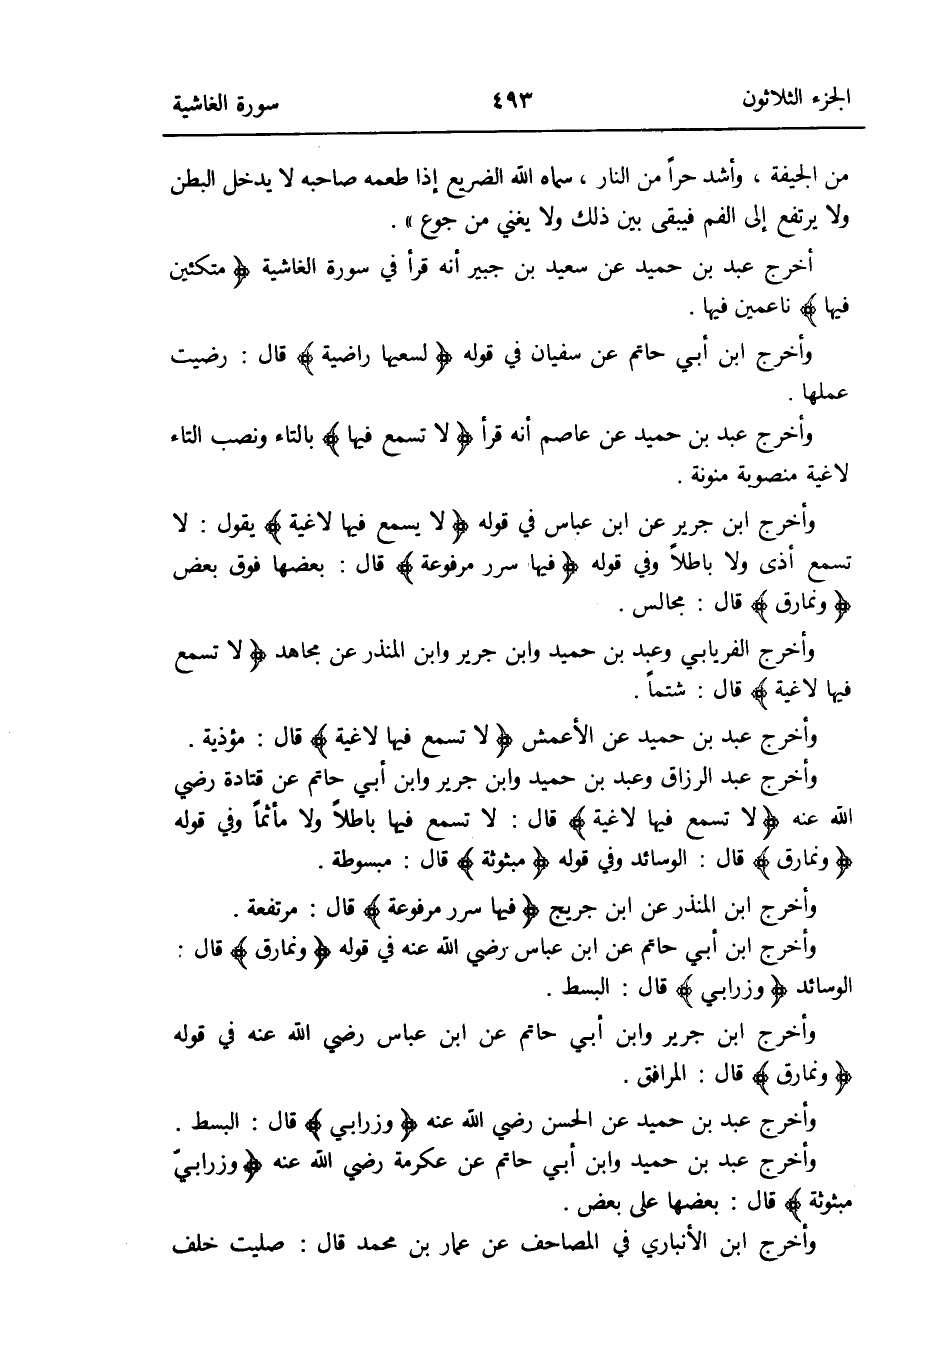 الجزء الثلاثون ٤٩٣ سورة الغاشية
من الجيفة ، وأشد حراً من النار ، سماه الله الضريع إذا طعمه صاحبه لا يدخل البطن
ولا يرتفع إلى الفم فيبقى بين ذلك ولا يغني من جوع » .
أخرج عبد بن حميد عن سعيد بن جبير أنه قرأ في سورة الغاشية ﴿ متكئين
فيها ﴾ ناعمين فيها .
وأخرج ابن أبي حاتم عن سفيان في قوله ﴿ لسعيها راضية ﴾ قال : رضيت
عملها .
وأخرج عبد بن حميد عن عاصم أنه قرأ ﴿ لا تسمع فيها ﴾ بالتاء ونصب التاء
لاغية منصوبة منونة .
وأخرج ابن جرير عن ابن عباس في قوله ﴿ لا يسمع فيها لاغية ﴾ يقول : لا
تسمع أذى ولا باطلاً وفي قوله ﴿ فيها سرر مرفوعة ﴾ قال : بعضها فوق بعض
﴿ ونمارق ﴾ قال : مجالس .
وأخرج الفريابي وعبد بن حميد وابن جرير وابن المنذر عن مجاهد ﴿ لا تسمع
فيها لاغية ﴾ قال : شتماً .
وأخرج عبد بن حميد عن الأعمش ﴿ لا تسمع فيها لاغية ﴾ قال : مؤذية .
وأخرج عبد الرزاق وعبد بن حميد وابن جرير وابن أبي حاتم عن قتادة رضي
الله عنه ﴿ لا تسمع فيها لاغية ﴾ قال : لا تسمع فيها باطلاً ولا مأثماً وفي قوله
﴿ ونمارق ﴾ قال : الوسائد وفي قوله ﴿ مبثوثة ﴾ قال : مبسوطة .
وأخرج ابن المنذر عن ابن جريج ﴿ فيها سرر مرفوعة ﴾ قال : مرتفعة .
وأخرج ابن أبي حاتم عن ابن عباس رضي الله عنه في قوله ﴿ ونمارق ﴾ قال :
الوسائد ﴿ وزرابي ﴾ قال : البسط .
وأخرج ابن جرير وابن أبي حاتم عن ابن عباس رضي الله عنه في قوله
﴿ ونمارق ﴾ قال : المرافق .
وأخرج عبد بن حميد عن الحسن رضي الله عنه ﴿ وزرابي ﴾ قال : البسط .
وأخرج عبد بن حميد وابن أبي حاتم عن عكرمة رضي الله عنه ﴿ وزرابيّ
مبثوثة ﴾ قال : بعضها على بعض .
وأخرج ابن الأنباري في المصاحف عن عمار بن محمد قال : صليت خلف